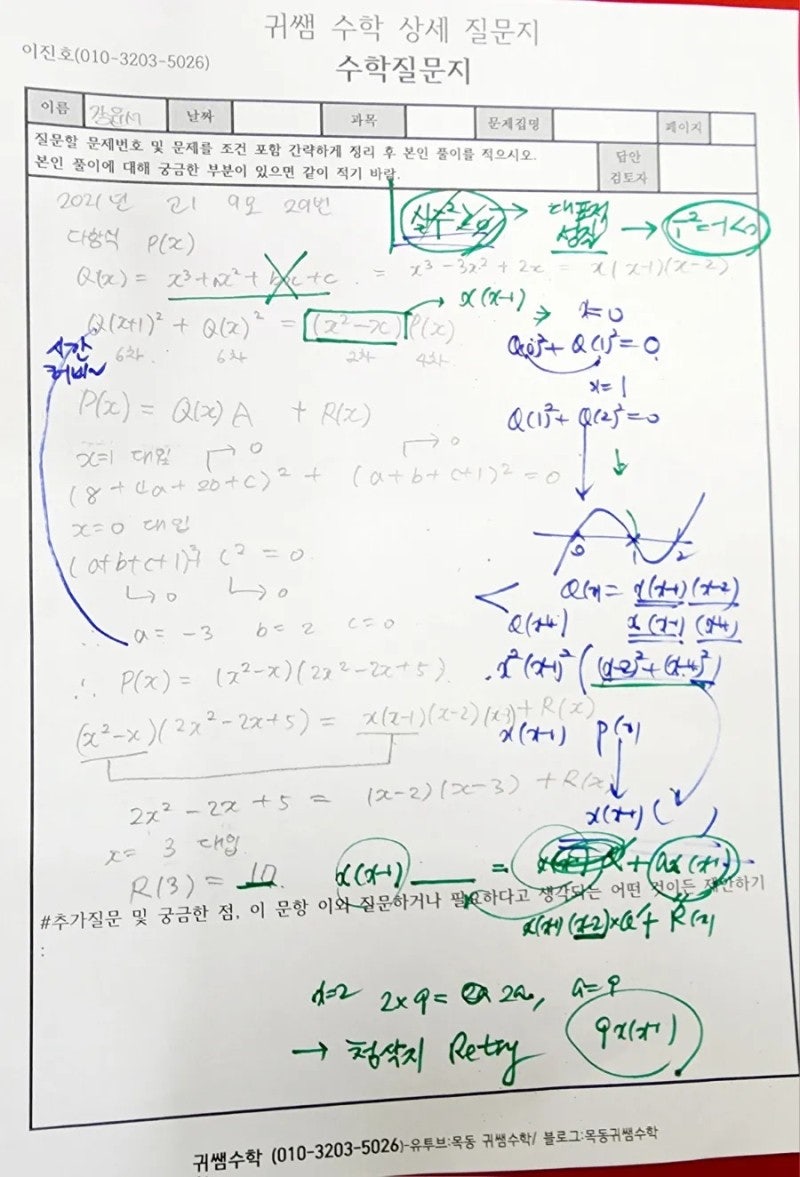 귀쌤 수학 상세 질문지
이진호(010-3203-5026)
수학질문지
이름 날짜 과목 문제집명 페이지
질문할 문제번호 및 문제를 조건 포함 간략하게 정리 후 본인 풀이를 적으시오.
본인 풀이에 대해 궁금한 부분이 있으면 같이 적기 바람.
답안
검토자
2021년 고1 9모 29번
실수²≥0 → 대표적 성질 → i²=-1<0
다항식 P(x)
Q(x) = x³+ax²+bx+c = x³-3x²+2x = x(x-1)(x-2)
x(x-1) ⇒ x=0
Q(x+1)² + Q(x)² = (x²-x)P(x)
6차 6차 2차 4차
Q(0)²+Q(1)²=0
x=1
Q(1)²+Q(2)²=0
P(x) = Q(x)A + R(x)
x=1 대입 → 0 → 0
(8+4a+2b+c)² + (a+b+c+1)² = 0
x=0 대입
(a+b+c+1)²+c² = 0
↳ 0 ↳ 0
0 1 2
∴ a = -3 b = 2 c = 0
Q(x)= x(x-1)(x-2)
Q(x+1) x(x-1)(x+1)
∴ P(x) = (x²-x)(2x²-2x+5)
x²(x-1)²((x-2)²+(x+1)²)
(x²-x)(2x²-2x+5) = x(x-1)(x-2)(x-3)+R(x)
x(x-1) P(x)
x(x-1)( )
2x²-2x+5 = (x-2)(x-3)+R(x)
x= 3 대입
R(3) = 17
x(x-1) = + ax(x-1)
#추가질문 및 궁금한 점, 이 문항 이와 질문하거나 필요하다고 생각되는 어떤 것이든 제안하기
:
x(x-1)(x-2)×Q'+R(x)
x=2 2×9= 2a, a=9
9x(x-1)
→ 첨삭지 Retry
귀쌤수학 (010-3203-5026)-유투브:목동 귀쌤수학/ 블로그:목동귀쌤수학